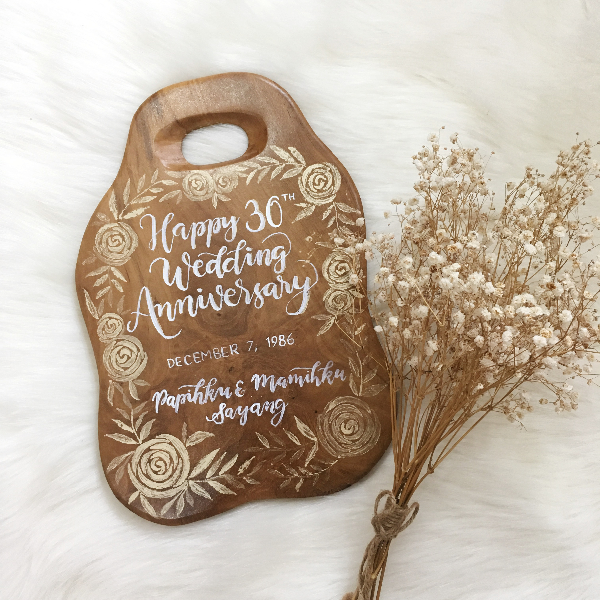 Happy 30TH
Wedding
Anniversary
DECEMBER 7, 1986
Papihku & Mamihku
Sayang